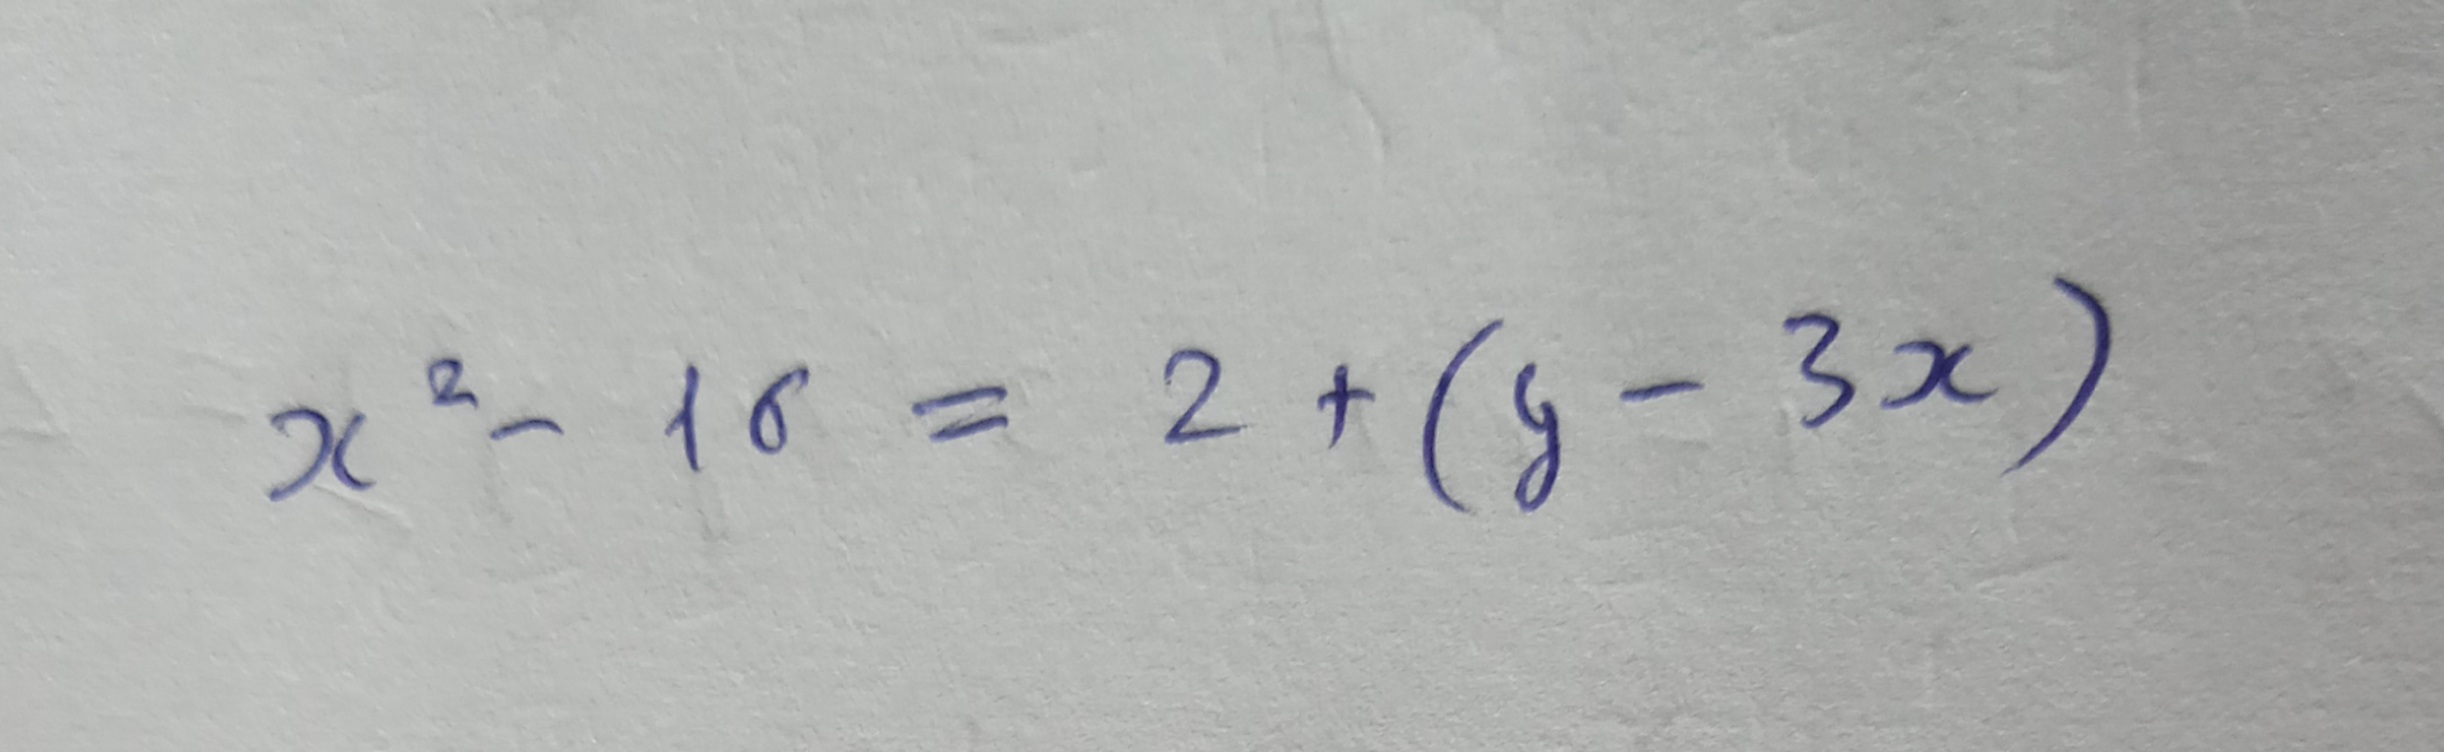 x² - 16 = 2 + (y - 3x)